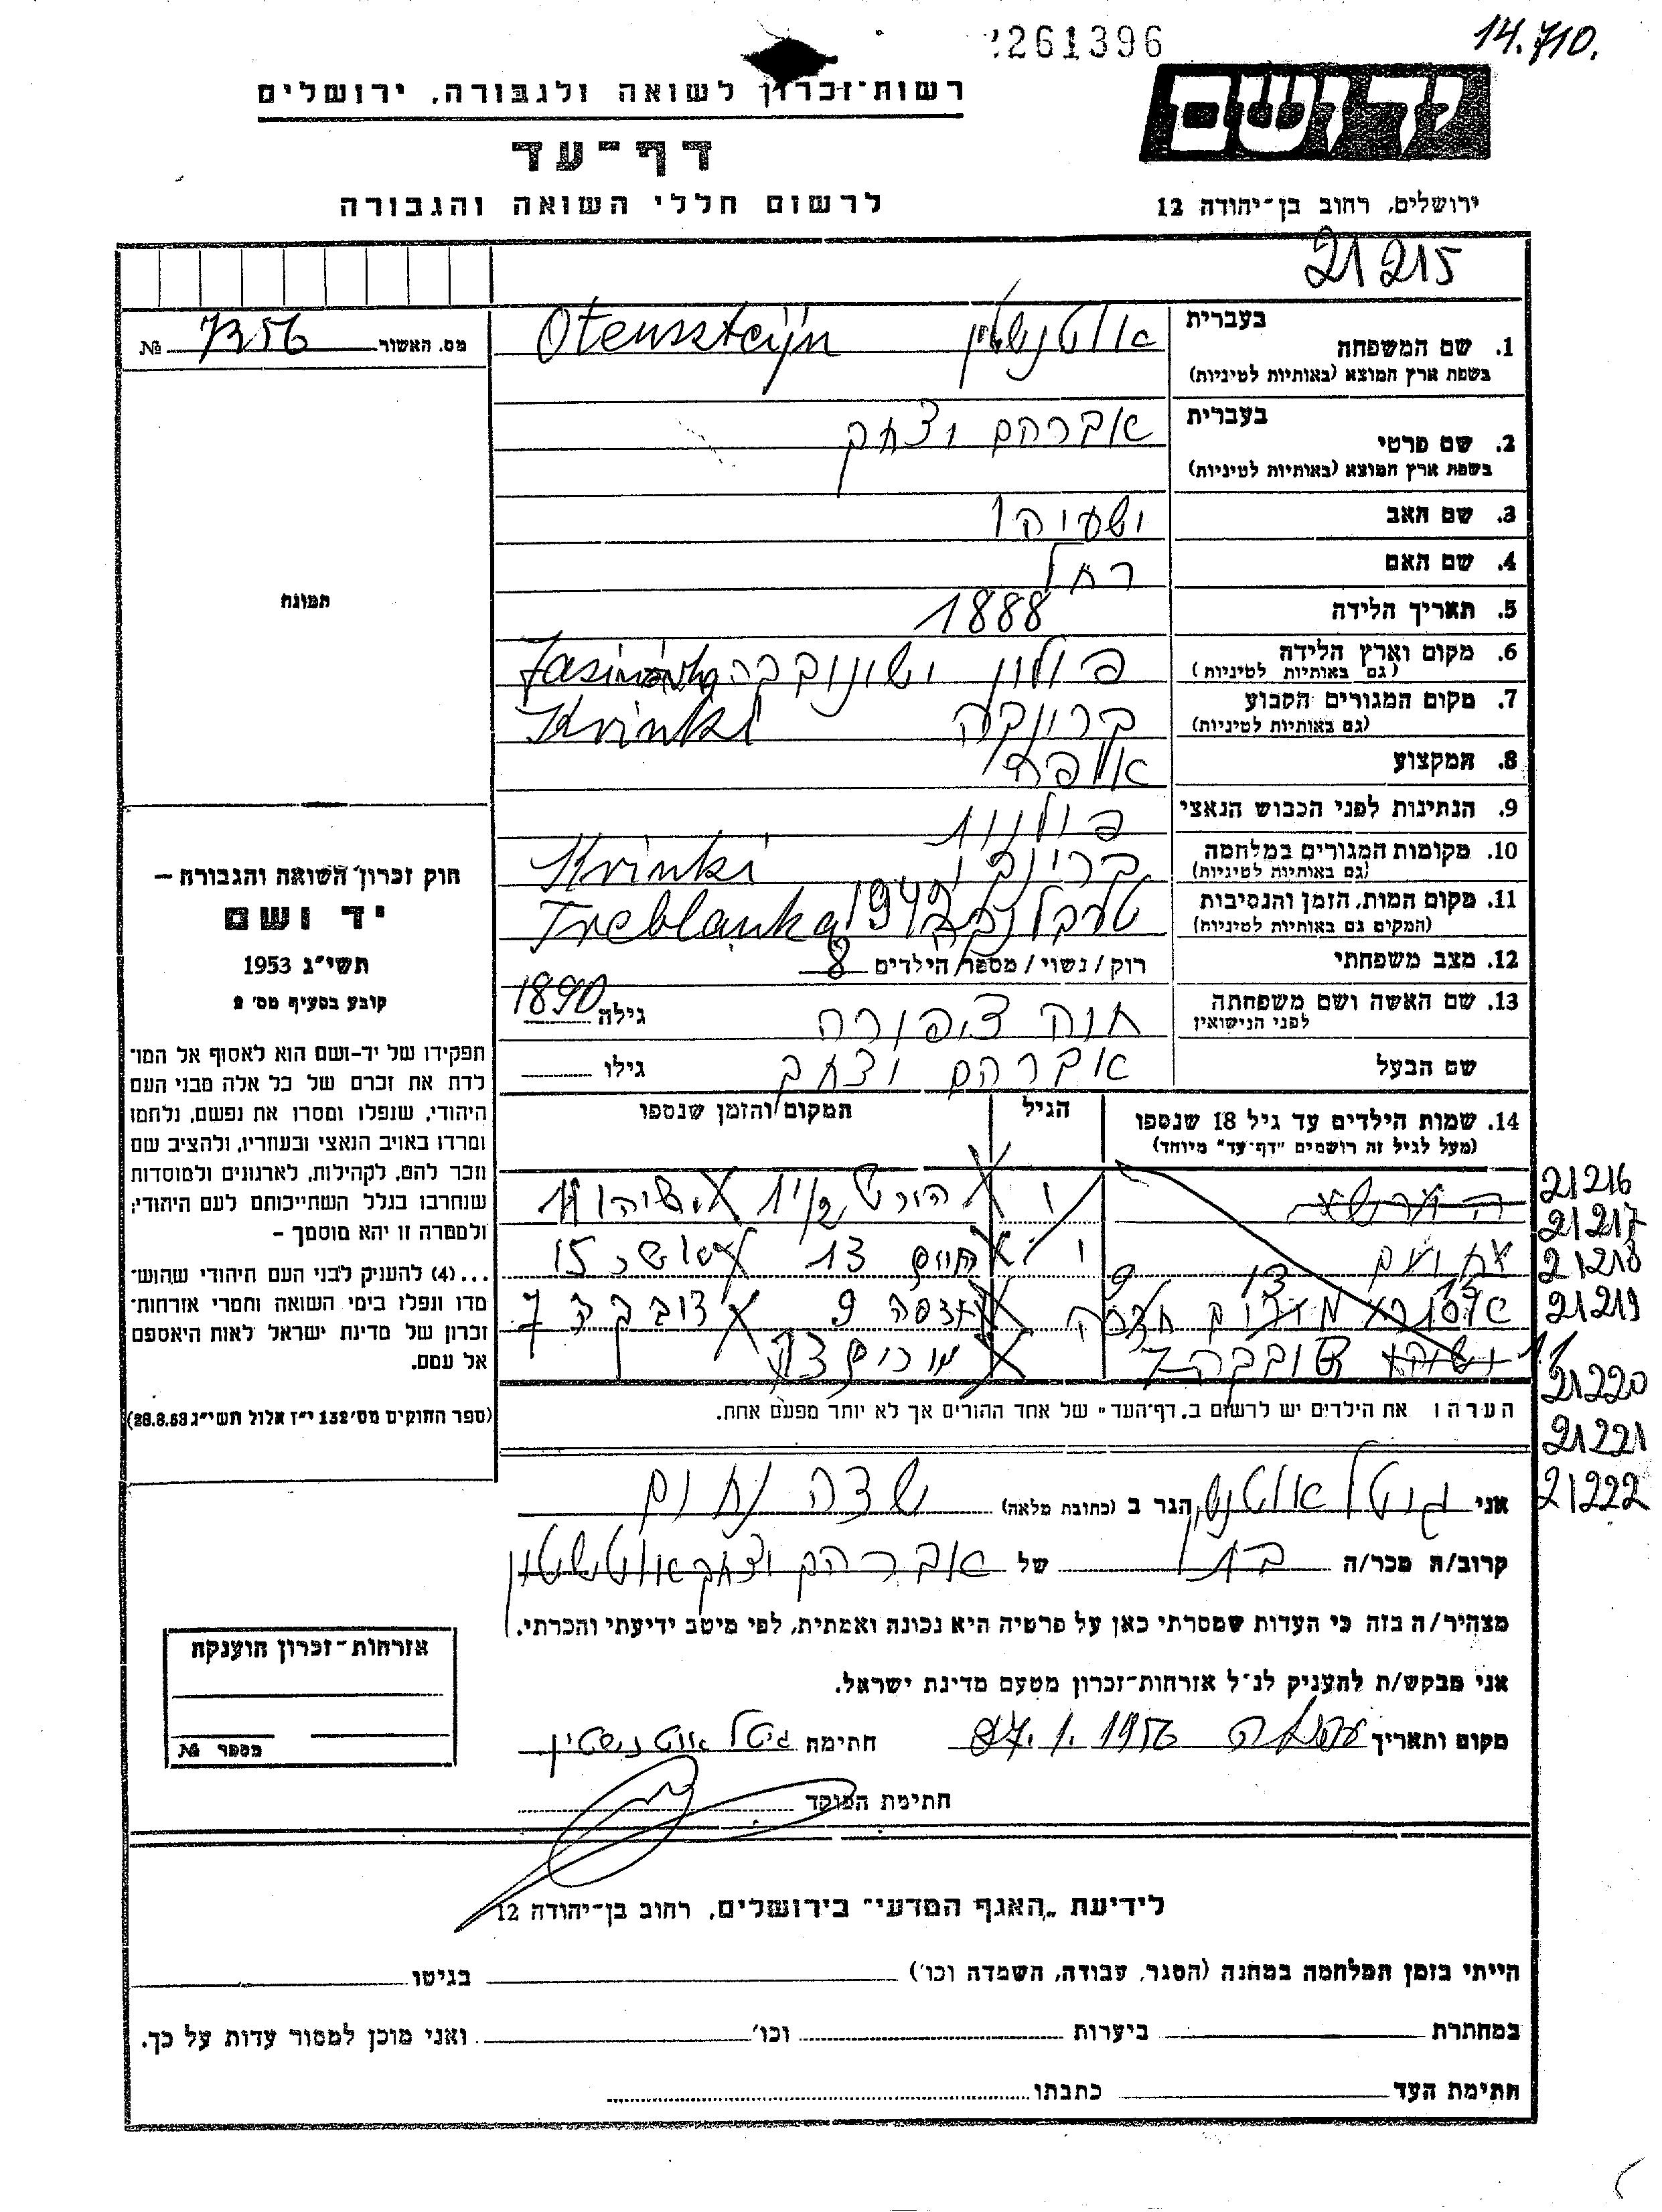 261396
14.710.
יד ושם
רשות־זכרון לשואה ולגבורה, ירושלים
דף־עד
לרשום חללי השואה והגבורה
ירושלים, רחוב בן־יהודה 12
21215
מס. האשור 7356 №
1. שם המשפחה
בעברית
בשפת ארץ המוצא (באותיות לטיניות)
אוטנשטין Otensztejn
2. שם פרטי
בעברית
בשפת ארץ המוצא (באותיות לטיניות)
אברהם יצחק
3. שם האב ישעיהו
4. שם האם רחל
5. תאריך הלידה 1888
6. מקום וארץ הלידה
(גם באותיות לטיניות)
פולין ישינובבה
7. מקום המגורים הקבוע
(גם באותיות לטיניות)
קרינקי Krinki
8. המקצוע אופה
9. הנתינות לפני הכבוש הנאצי פולנית
10. מקומות המגורים במלחמה
(גם באותיות לטיניות)
קרינקי Krinki
11. מקום המות, הזמן והנסיבות
(המקום גם באותיות לטיניות)
טרבלנקה Treblanka
12. מצב משפחתי רוק / נשוי / מספר הילדים 8
13. שם האשה ושם משפחתה
לפני הנישואין
חוה ציפורה גילה 1890
שם הבעל אברהם יצחק גילו
14. שמות הילדים עד גיל 18 שנספו
(מעל לגיל זה רושמים "דף־עד" מיוחד)
הגיל
המקום והזמן שנספו
21216
21217
21218
21219
21220
21221
21222
הערה: את הילדים יש לרשום ב„דף־העד" של אחד ההורים אך לא יותר מפעם אחת.
תמונה
חוק זכרון השואה והגבורה —
יד ושם
תשי"ג 1953
קובע בסעיף מס' 2
תפקידו של יד-ושם הוא לאסוף אל המו־
לדת את זכרם של כל אלה מבני העם
היהודי, שנפלו ומסרו את נפשם, נלחמו
ומרדו באויב הנאצי ובעוזריו, ולהציב שם
וזכר להם, לקהילות, לארגונים ולמוסדות
שנחרבו בגלל השתייכותם לעם היהודי;
ולמטרה זו יהא מוסמך —
...(4) להעניק לבני העם היהודי שהוש־
מדו ונפלו בימי השואה והמרי אזרחות־
זכרון של מדינת ישראל לאות היאספם
אל עמם.
(ספר החוקים מס' 132 י"ז אלול תשי"ג 28.8.53)
אני גיטל אוטנשטין הגר ב (כתובת מלאה) שדה נחום
קרוב/ה מכר/ה בת של אברהם יצחק אוטנשטין
מצהיר/ה בזה כי העדות שמסרתי כאן על פרטיה היא נכונה ואמתית, לפי מיטב ידיעתי והכרתי.
אני מבקש/ת להעניק לנ"ל אזרחות־זכרון מטעם מדינת ישראל.
מקום ותאריך עפולה 27.1.1956 חתימה גיטל אוטנשטין
חתימת הפוקד
אזרחות־זכרון הוענקה
מספר №
לידיעת „האגף המדעי" בירושלים, רחוב בן־יהודה 12
הייתי בזמן המלחמה במחנה (הסגר, עבודה, השמדה וכו') בגיטו
במחתרת ביערות וכו' ואני מוכן למסור עדות על כך.
חתימת העד כתבתו